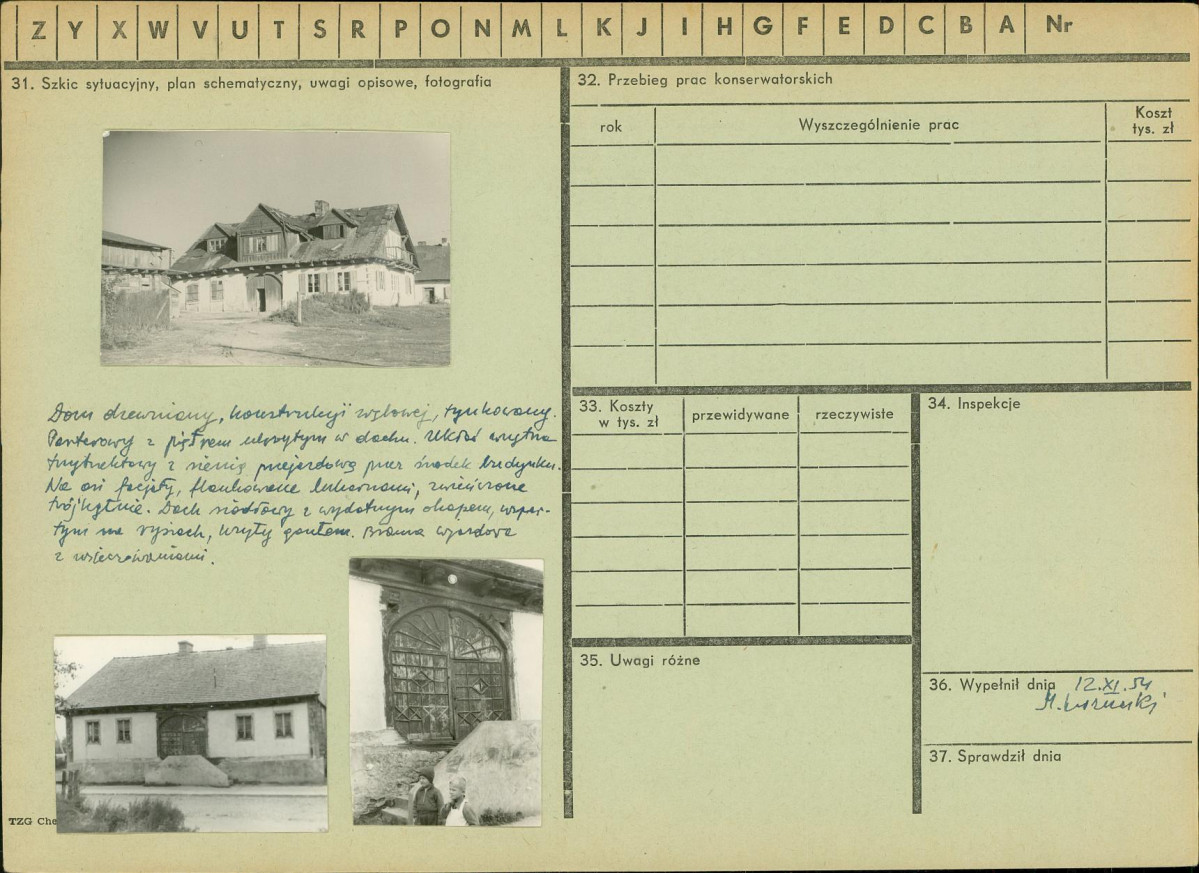 Z Y X W V U T S R P O N M L K J I H G F E D C B A Nr
31. Szkic sytuacyjny, plan schematyczny, uwagi opisowe, fotografia
Dom drewniany, konstrukcji węgłowej, tynkowany.
Parterowy z piętrem ukrytym w dachu. Układ wnętrza
trzytraktowy z sienią przejazdową przez środek budynku.
Na osi facjaty, flankowane lukarnami, zwieńczone
trójkątnie. Dach siodłowy z wydatnym okapem, wspar-
tym na rysiach, kryty gontem. Brama wjazdowa
z
TZG Che
32. Przebieg prac konserwatorskich
rok
Wyszczególnienie prac
Koszt
tys. zł
33. Koszty
w tys. zł
przewidywane
rzeczywiste
34. Inspekcje
35. Uwagi różne
36. Wypełnił dnia 12.XI.54
37. Sprawdził dnia